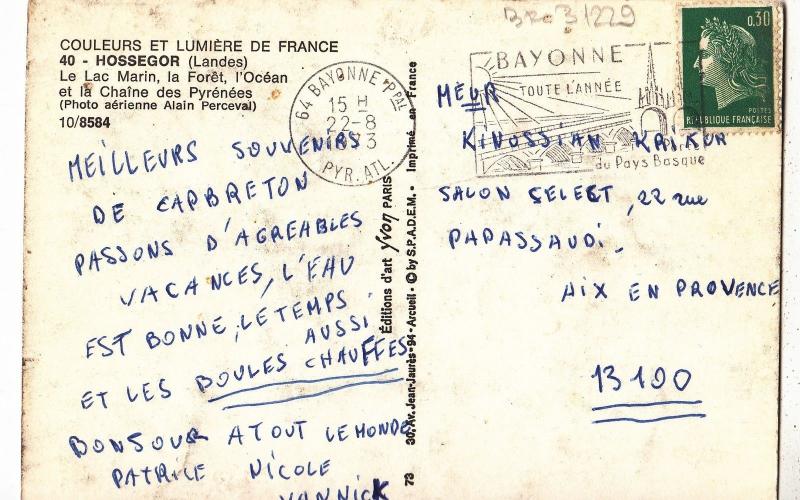 BRO 31229
COULEURS ET LUMIÈRE DE FRANCE
40 - HOSSEGOR (Landes)
Le Lac Marin, la Forêt, l'Océan
et la Chaîne des Pyrénées
(Photo aérienne Alain Perceval)
10/8584
64 BAYONNE PPAL
15 H
22-8
PYR. ATL.
BAYONNE
TOUTE L'ANNÉE
du Pays Basque
0,30
POSTES
RÉPUBLIQUE FRANÇAISE
MEILLEURS SOUVENIRS
DE CAPBRETON
PASSONS D'AGREABLES
VACANCES, L'EAU
EST BONNE, LE TEMPS
AUSSI
ET LES BOULES CHAUFFES
BONSOUR A TOUT LE MONDE
PATRICE NICOLE
YANNICK
Éditions d'art Yvon PARIS
30, Av. Jean-Jaurès - 94 - Arcueil - © by S.P.A.D.E.M. - Imprimé en France
73
MEUR
KINOSSIAN KRIKUR
SALON SELECT, 22 rue
PAPASSAUDI
AIX EN PROVENCE
13100